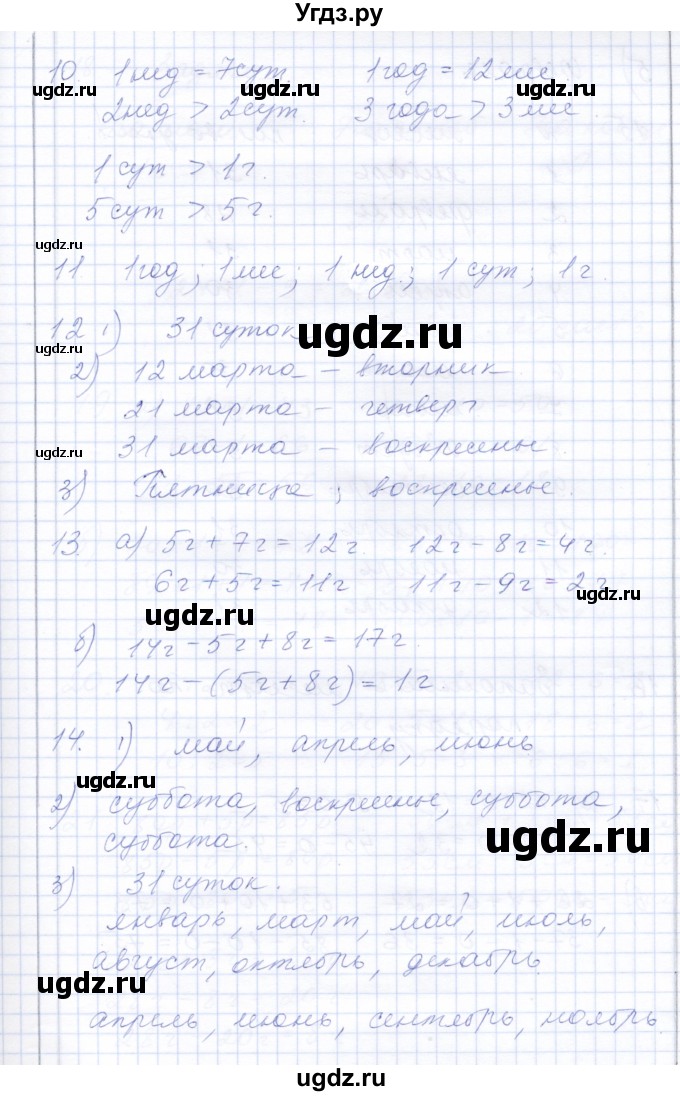 Угдз.ру
10. 1 нед = 7 сут. 1 год = 12 мес
ugdz.ru ugdz.ru ugdz.ru
2 нед > 2 сут. 3 года > 3 мес
1 сут > 1 ч.
5 сут > 5 ч.
ugdz.ru
11 1 год; 1 мес; 1 нед.; 1 сут; 1 ч.
12 1) 31 суток
ugdz.ru
ugdz.ru
2) 12 марта – вторник
21 марта – четверг
31 марта – воскресенье
ugdz.ru
3) Пятница; воскресенье.
13. а) 5ч + 7ч = 12ч. 12ч – 8ч = 4ч.
6ч + 5ч = 11ч 11ч – 9ч = 2ч
ugdz.ru
ugdz.ru
б) 14ч – 5ч + 8ч = 17ч.
14ч – (5ч + 8ч) = 1ч.
14. 1) май, апрель, июнь
ugdz.ru
2) суббота, воскресенье, суббота,
суббота.
ugdz.ru
3) 31 суток.
январь, март, май, июль,
август, октябрь, декабрь.
ugdz.ru
апрель, июнь, сентябрь, ноябрь
ugdz.ru